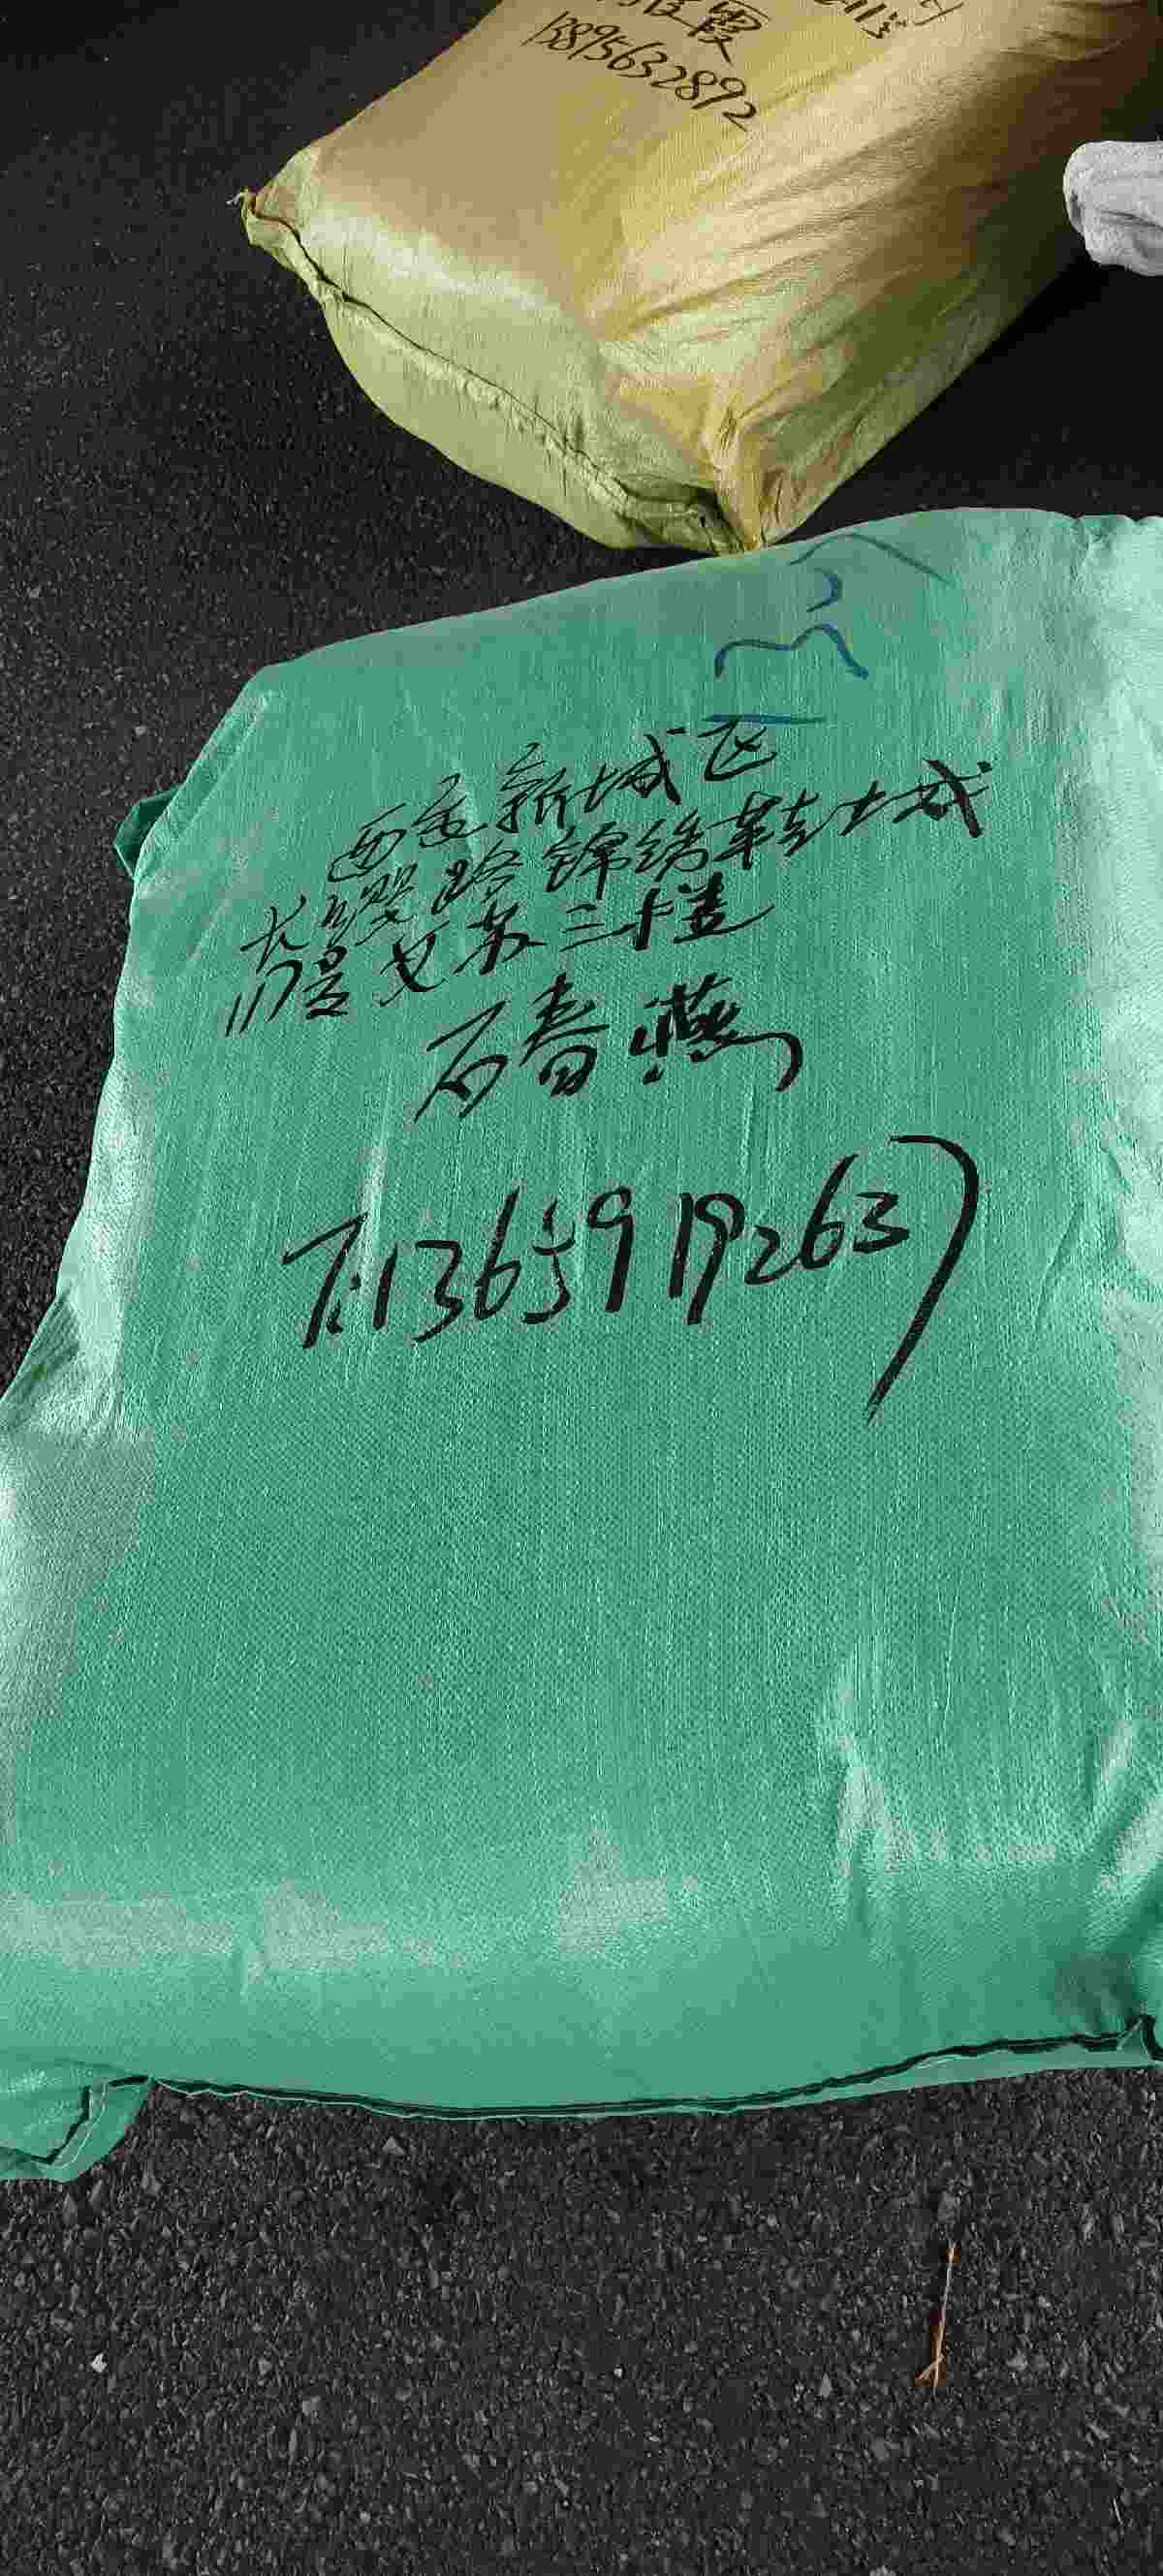 霞
13895632892
西安新城区
长缨路锦绣鞋城
117号女苏三十楼
石春燕
T:13659192637